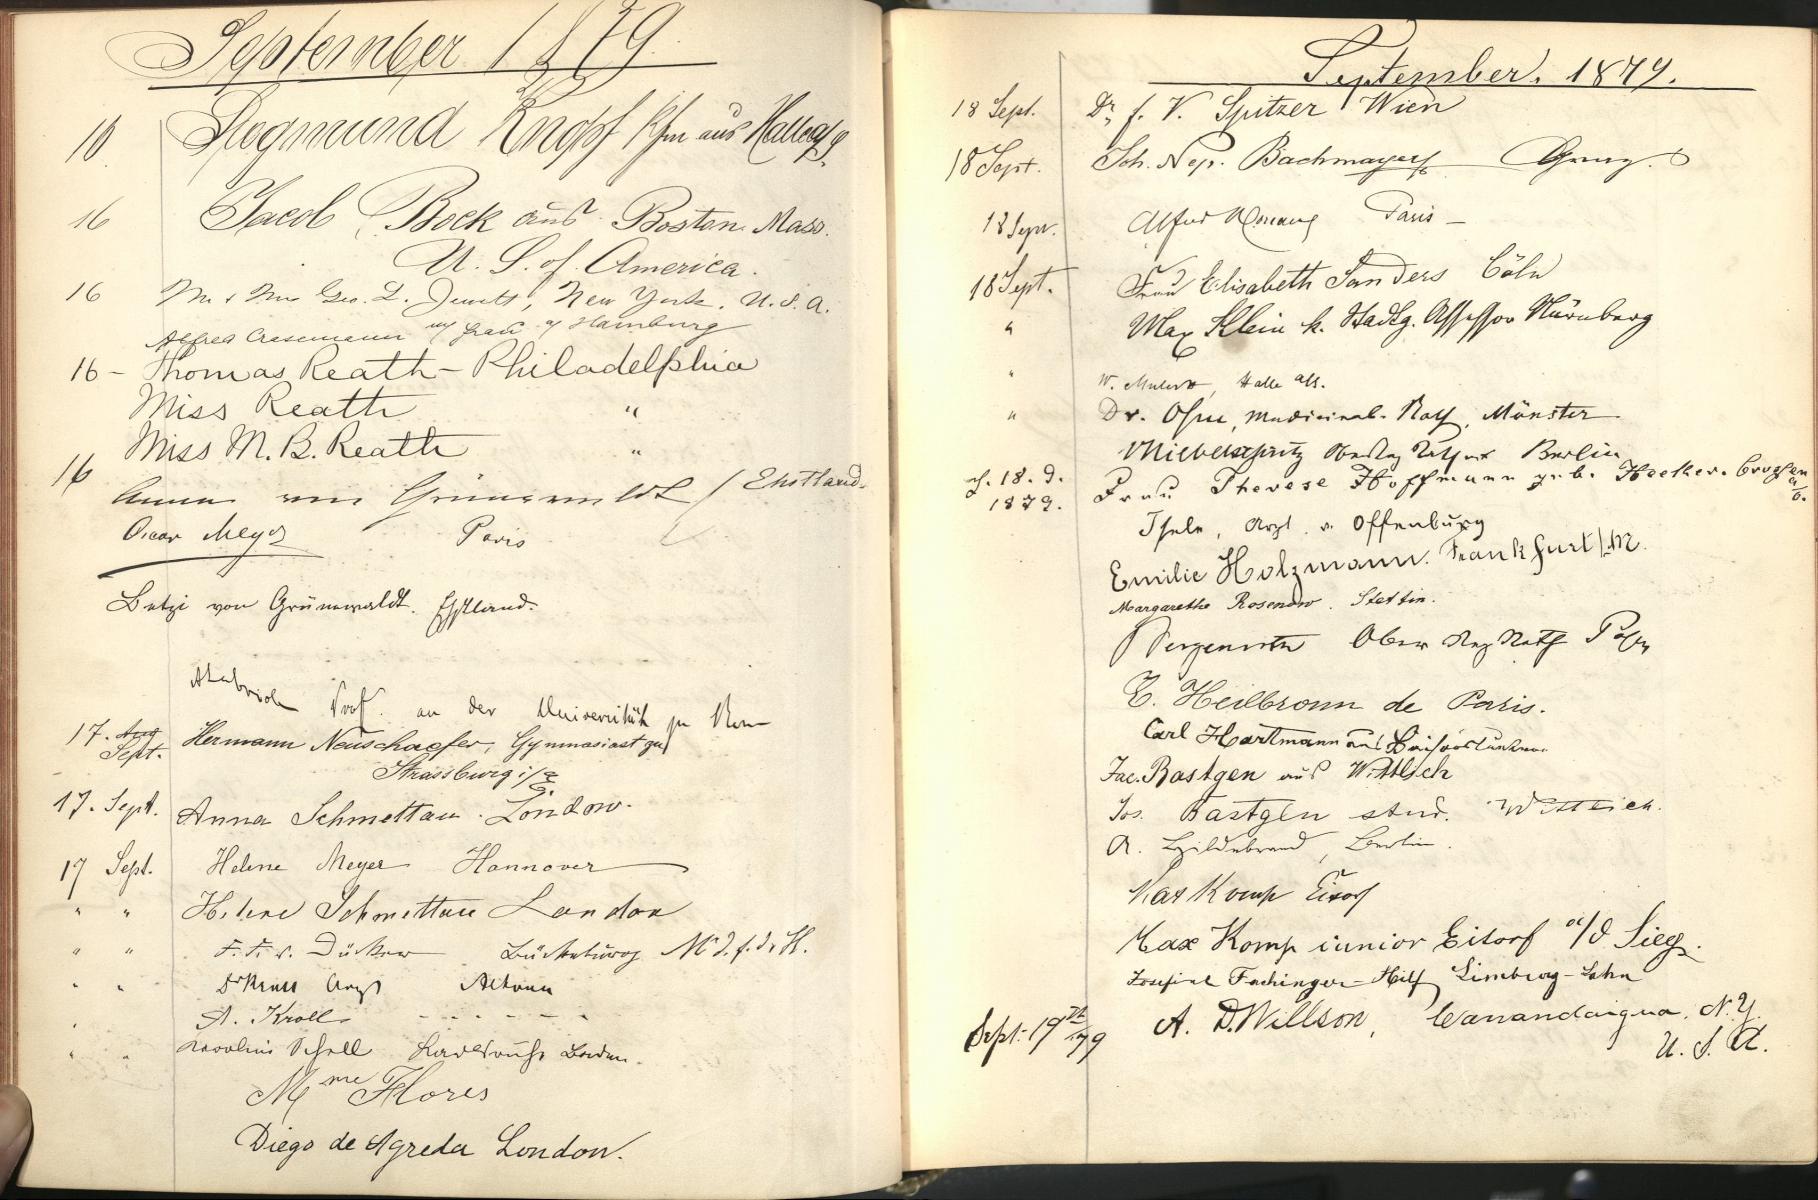 September 1879
10 Siegmund Knopf Kfm aus Halle a/S
16 Jacob Bock aus Boston Mass.
U. S. of America.
16 Mr & Mrs Geo. L. Jewett, New York. U.S.A.
Alfred Crasemann u/ Frau of Hamburg
16 - Thomas Reath - Philadelphia
Miss Reath "
Miss M. B. Reath "
16 von Grünewaldt / Ehstland.
Oscar Meyer Paris
Betzi von Grünewaldt. Ehstland.
Prof. an der Universität zu
17. Aug Sept. Hermann Neuschaefer, Gymnasiast zu
Strassburg i/E.
17. Sept. Anna Schmettau. London.
17 Sept. Helene Meyer Hannover
" " Helene Schmettau London
" " Bückeburg M. d. f. d. H.
" " Dr Arzt Altona
" A. Kroll - - - - - -
" " Karoline Schell Karlsruhe Baden.
Mme Flores
Diego de Agreda London.
September. 1879.
18 Sept. Dr. f. V. Spitzer Wien
18 Sept. Joh. Nep. Bachmayer Graz.
18 Sept. Alfred Paris -
18 Sept. Frau Elisabeth Sanders Cöln
" Max Klein k. Stadtg. Assessor Nürnberg
" W. Halle a/S.
" Dr. Medicinal-Rath, Münster
Berlin
d. 18. 9. Frau Therese Hoffmann geb. Haecker. Crossen
1879. a/O.
Arzt v. Offenburg
Emilie Holzmann. Frankfurt/M.
Margarethe Rosenow. Stettin.
Ober Reg Rath Posen
E. Heilbronn de Paris.
Carl Hartmann aus Kaiserslautern
Jac. Bastgen aus Wittlich
Jos. Bastgen stud. Wittlich.
A. Hildebrand, Berlin.
Max Komp Eitorf
Max Komp iunior Eitorf a/d Sieg.
Josefine Fachinger-Hilf Limburg-Lahn
Sept. 19th /79 A. D. Willson, Canandaigua, N.Y.
U. S. A.